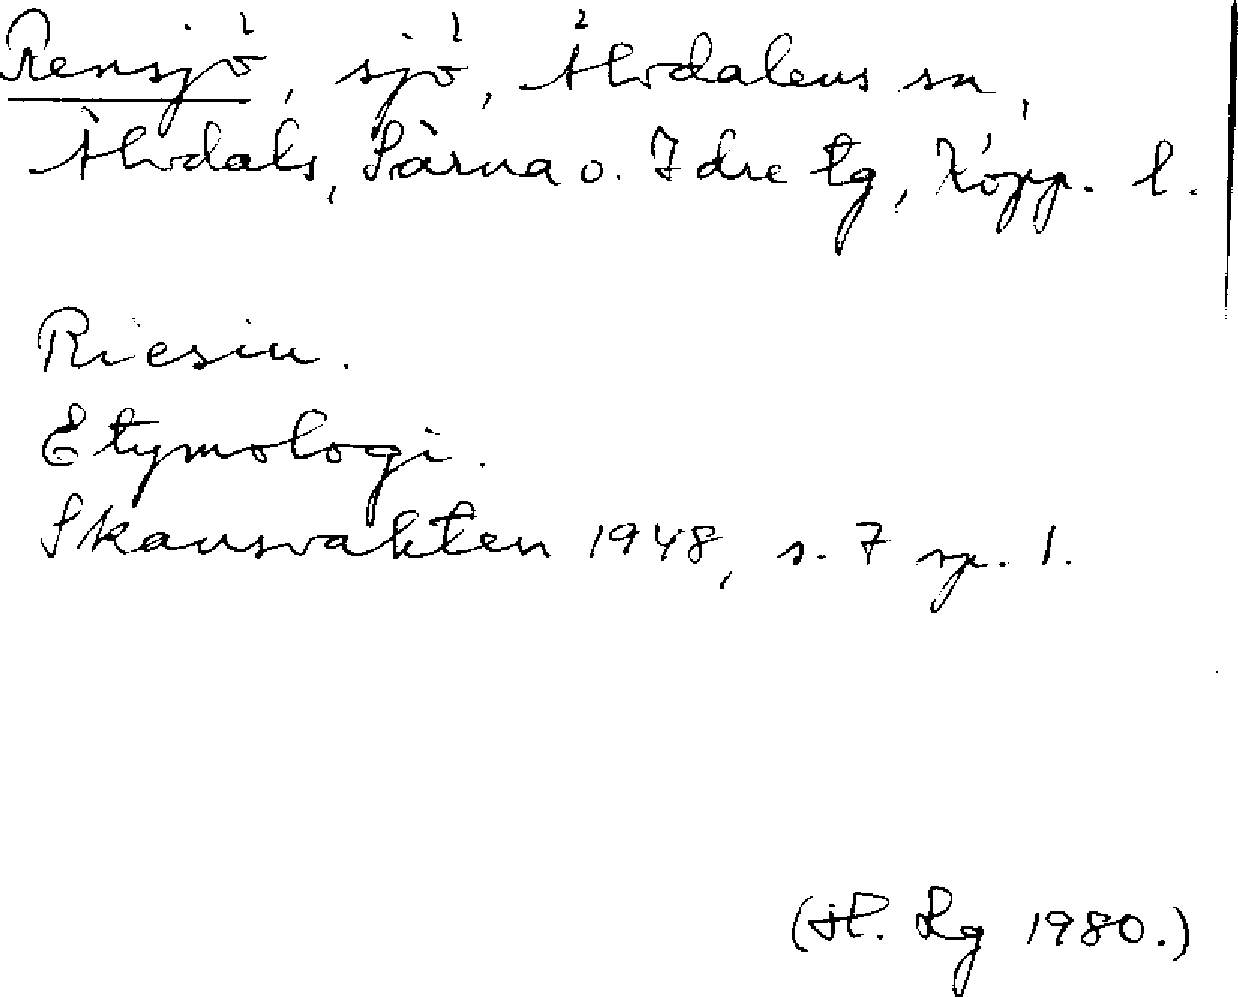 Rensjö, sjö, Älvdalens sn,
Älvdals, Särna o. Idre tg, Kopp. l.
Riesiu.
Etymologi.
Skansvakten 1948, s. 7 sp. 1.
(H. Lg 1980.)